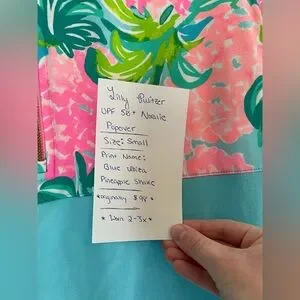 Lilly Pulitzer
UPF 50+ Noralie
Popover
Size: Small
Print Name:
Blue Ibiza
Pineapple Shake
*originally $98*
* Worn 2-3x *